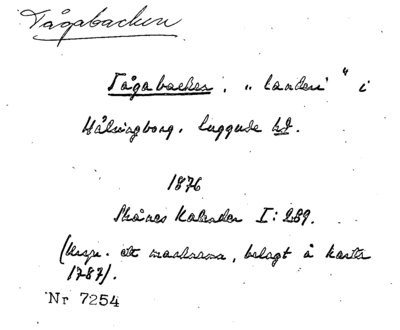 Tågabacken
Tågabacken, „landeri" i
Hälsingborg, Luggude hd.
1876
Skånes Kalender I: 289.
(Urspr. ett marknamn, belagt å karta
1787).
Nr 7254